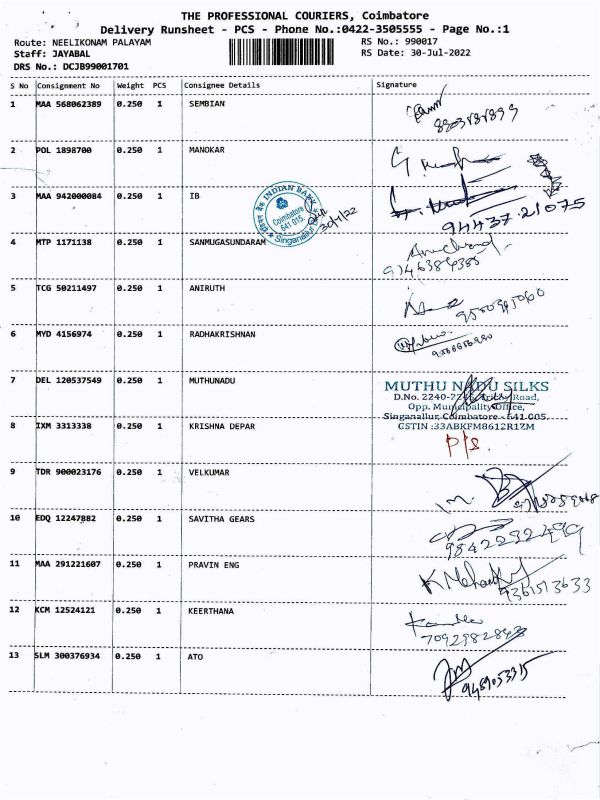 THE PROFESSIONAL COURIERS, Coimbatore
Delivery Runsheet - PCS - Phone No.:0422-3505555 - Page No.:1
Route: NEELIKONAM PALAYAM
RS No.: 990017
Staff: JAYABAL
RS Date: 30-Jul-2022
DRS No.: DCJB99001701
S No Consignment No Weight PCS Consignee Details Signature
1 MAA 568062389 0.250 1 SEMBIAN
2 POL 1898700 0.250 1 MANOKAR
3 MAA 942000084 0.250 1 IB
INDIAN BANK
Coimbatore
641 015.
Singanallur
94437-21075
4 MTP 1171138 0.250 1 SANMUGASUNDARAM
5 TCG 50211497 0.250 1 ANIRUTH
6 MYD 4156974 0.250 1 RADHAKRISHNAN
7 DEL 120537549 0.250 1 MUTHUNADU
MUTHU NADU SILKS
D.No. 2240- Road,
Opp. Municipality Office,
Singanallur, Coimbatore - 641 005.
GSTIN :33ABKFM8612R1ZM
8 IXM 3313338 0.250 1 KRISHNA DEPAR
P/s.
9 TDR 900023176 0.250 1 VELKUMAR
10 EDQ 12247882 0.250 1 SAVITHA GEARS
9842232499
11 MAA 291221607 0.250 1 PRAVIN ENG
9361513633
12 KCM 12524121 0.250 1 KEERTHANA
7092982843
13 SLM 300376934 0.250 1 ATO
9489053315